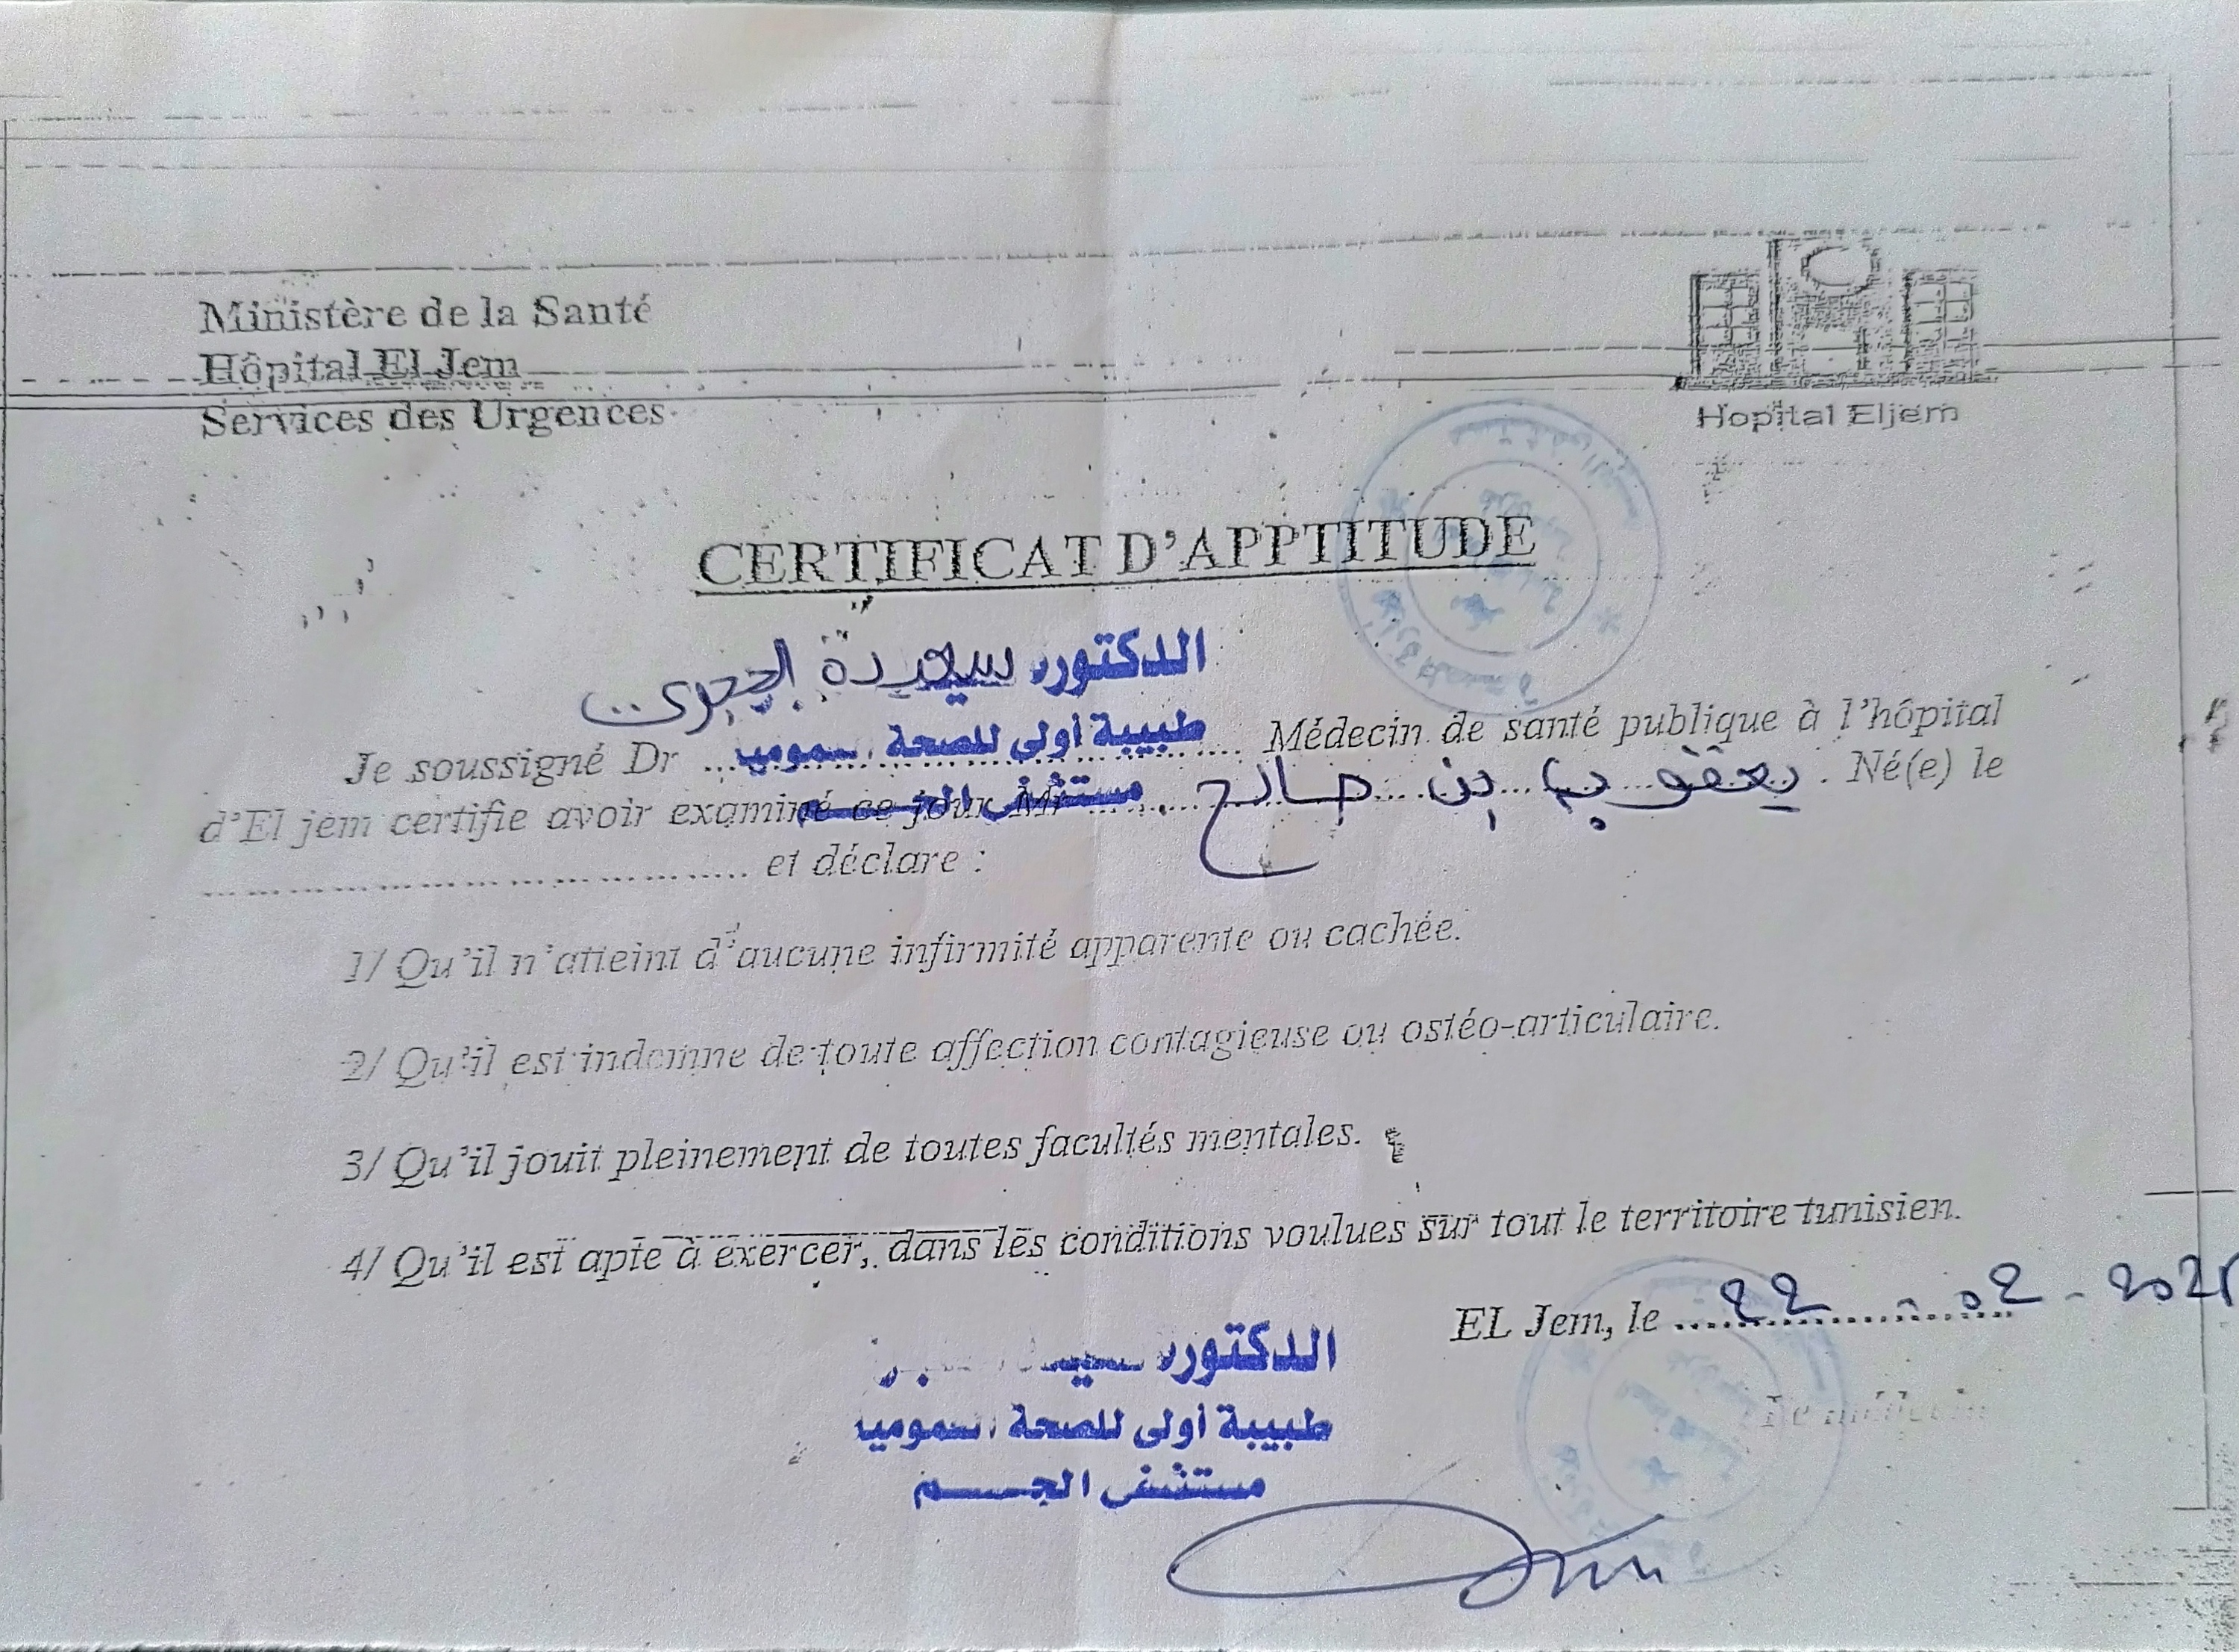 Ministère de la Santé
Hôpital El Jem
Services des Urgences
Hopital Eljem
CERTIFICAT D'APPTITUDE
الدكتورة سعيدة
طبيبة أولى للصحة العمومية
Je soussigné Dr .......... Médecin de santé publique à l'hôpital
مستشفى الجم
d'El jem certifie avoir examiné ce jour Mr يعقوب بن صالح . Né(e) le
.......... et déclare :
1/ Qu'il n'atteint d'aucune infirmité apparente ou cachée.
2/ Qu'il est indemne de toute affection contagieuse ou ostéo-articulaire.
3/ Qu'il jouit pleinement de toutes facultés mentales.
4/ Qu'il est apte à exercer, dans les conditions voulues sur tout le territoire tunisien.
EL Jem, le 22 - 02 -
Le médecin
الدكتورة
طبيبة أولى للصحة العمومية
مستشفى الجم